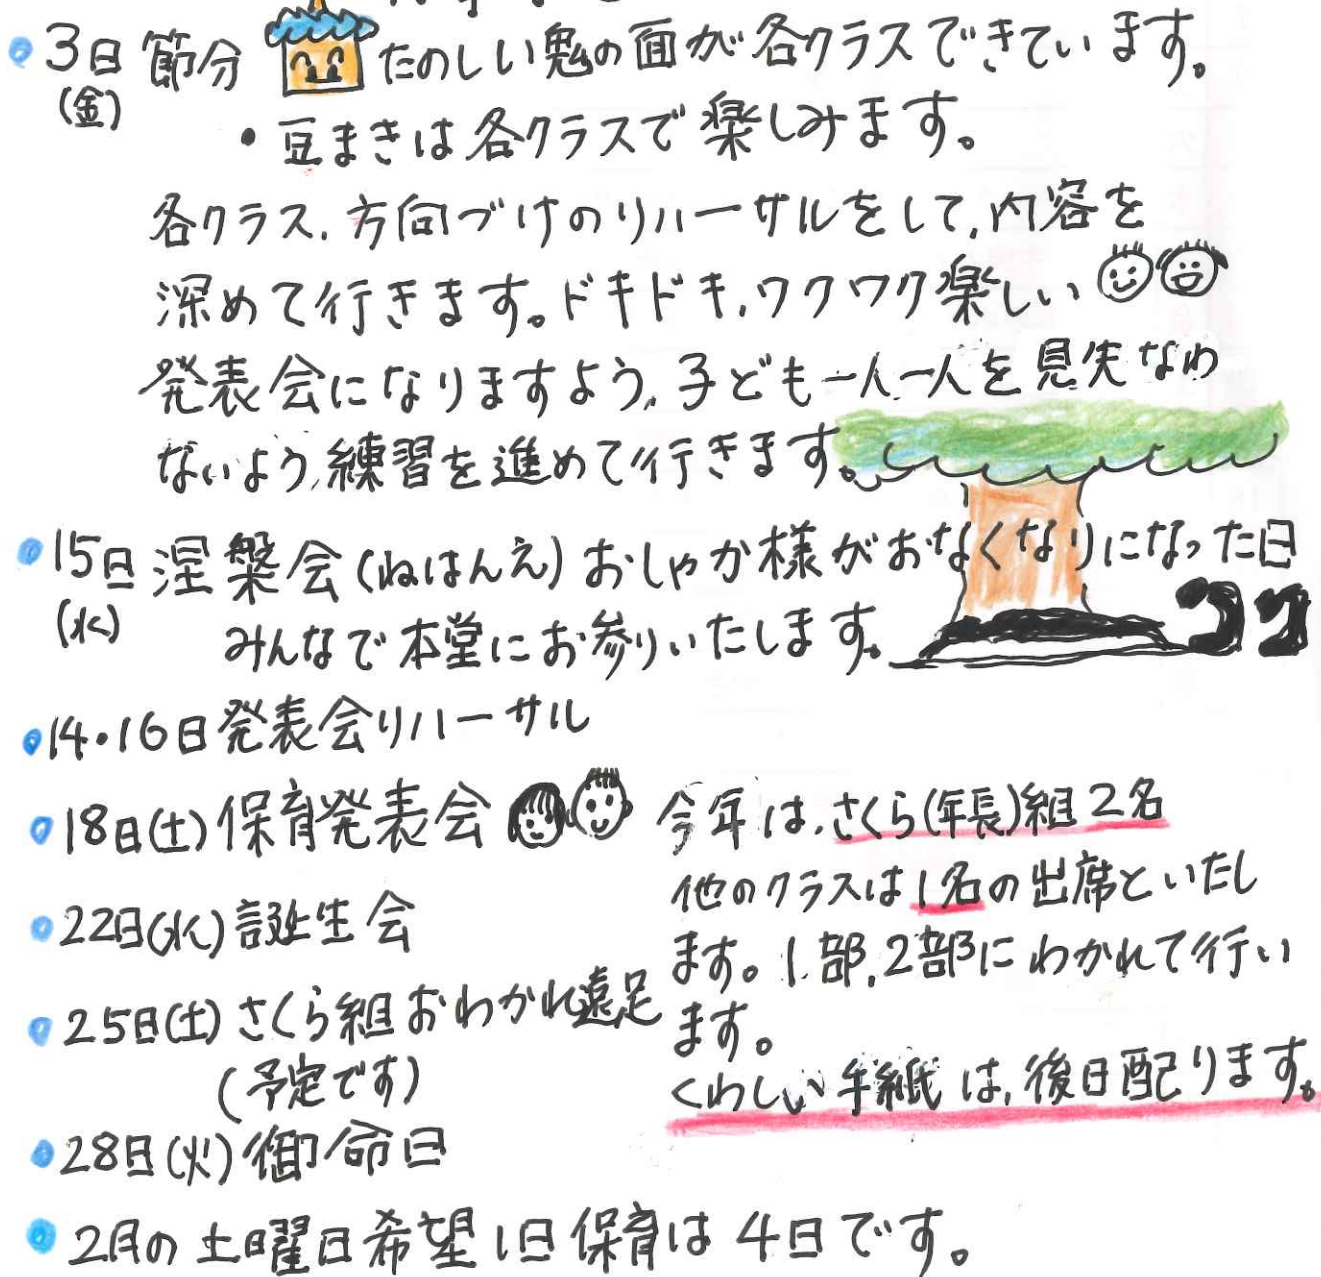 3日 節分 たのしい鬼の面が各クラスできています。
(金)
・豆まきは各クラスで楽しみます。
各クラス、方向づけのリハーサルをして、内容を
深めて行きます。ドキドキ、ワクワク楽しい
発表会になりますよう、子ども一人一人を見失なわ
ないよう、練習を進めて行きます。
15日 涅槃会(ねはんえ)おしゃか様がおなくなりになった日
(水)
みんなで本堂にお参りいたします。
14・16日発表会リハーサル
18日(土)保育発表会
22日(水)誕生会
25日(土)さくら組おわかれ遠足
(予定です)
28日(火)御命日
今年は、さくら(年長)組2名
他のクラスは1名の出席といたし
ます。1部、2部にわかれて行い
ます。
くわしい手紙は、後日配ります。
2月の土曜日希望1日保育は4日です。